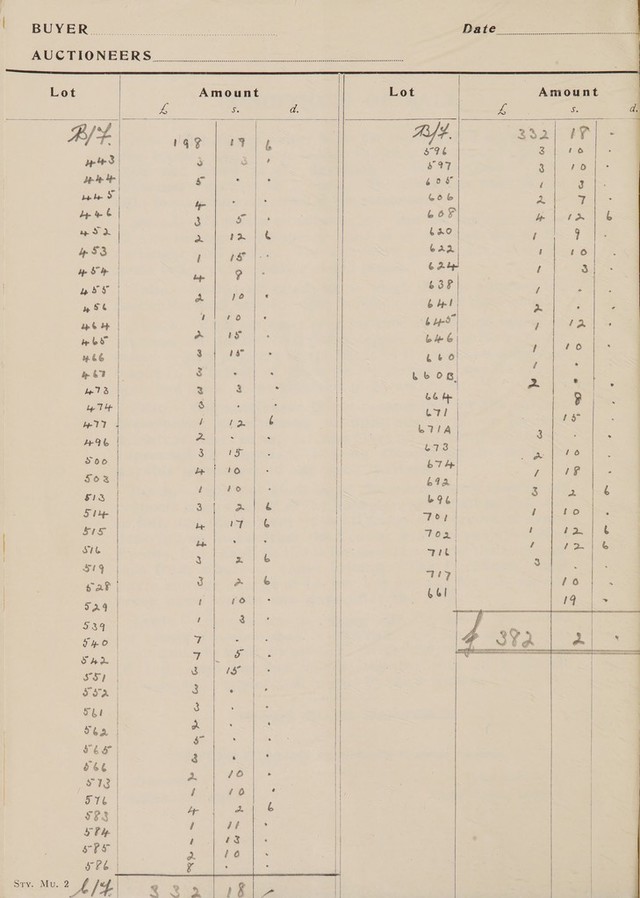 BUYER Date
AUCTIONEERS
Lot Amount
£ s. d.
B/F. 198 19 6
443 3 3 ·
444 5 · ·
445 4 · ·
446 3 5 ·
452 2 12 6
453 1 15 ·
454 4 8 ·
455 2 10 ·
456 1 10 ·
464 2 15 ·
465 3 15 ·
466 3 · ·
467 3 3 ·
473 3 · ·
474 1 12 6
477 2 · ·
496 3 15 ·
500 4 10 ·
503 1 10 ·
513 3 2 6
514 4 17 6
515 4 · ·
516 3 2 6
519 3 2 6
528 1 10 ·
529 1 3 ·
539 7 · ·
540 7 5 ·
542 3 15 ·
551 3 · ·
552 3 · ·
561 2 · ·
562 5 · ·
565 3 · ·
566 2 10 ·
573 1 10 ·
576 4 2 6
583 1 11 ·
584 1 13 ·
585 2 10 ·
586 8 · ·
Sty. Mu. 2 C/F. 332 18 -
Lot Amount
£ s. d.
B/F. 332 18 -
596 3 10 ·
597 3 10 ·
605 1 3 ·
606 2 7 ·
608 4 12 6
620 1 9 ·
622 1 10 ·
624 1 3 ·
638 1 · ·
641 2 · ·
645 1 12 ·
646 1 10 ·
660 1 · ·
660B. 2 · ·
664 8 ·
671 15 ·
671A 3 · ·
673 2 10 ·
674 1 18 ·
692 3 2 6
696 1 10 ·
701 1 12 6
702 1 12 6
716 3 · ·
717 10 ·
661 19 -
£ 382 2 ·